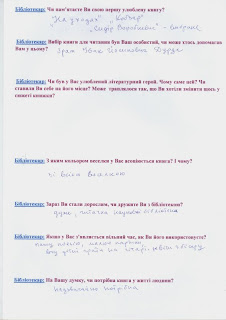 Бібліотекар: Чи пам'ятаєте Ви свою першу улюблену книгу?
"На уходах", "Кобзар"
Бібліотекар: Вибір книги для читання був Ваш особистий, чи може хтось допомагав
Вам у цьому?
Іван
Бібліотекар: Чи був у Вас улюблений літературний герой? Чому саме цей? Чи
ставили Ви себе на його місце? Може траплялося так, що Ви хотіли змінити щось у
сюжеті книжки?
Бібліотекар: З яким кольором веселки у Вас асоціюється книга? І чому?
зі всією веселкою
Бібліотекар: Зараз Ви стали дорослим, чи дружите Ви з бібліотекою?
дуже, читаю
Бібліотекар: Якщо у Вас з'являється вільний час, як Ви його використовуєте?
пишу малюю картини
граю на гітарі
Бібліотекар: На Вашу думку, чи потрібна книга у житті людини?
потрібна